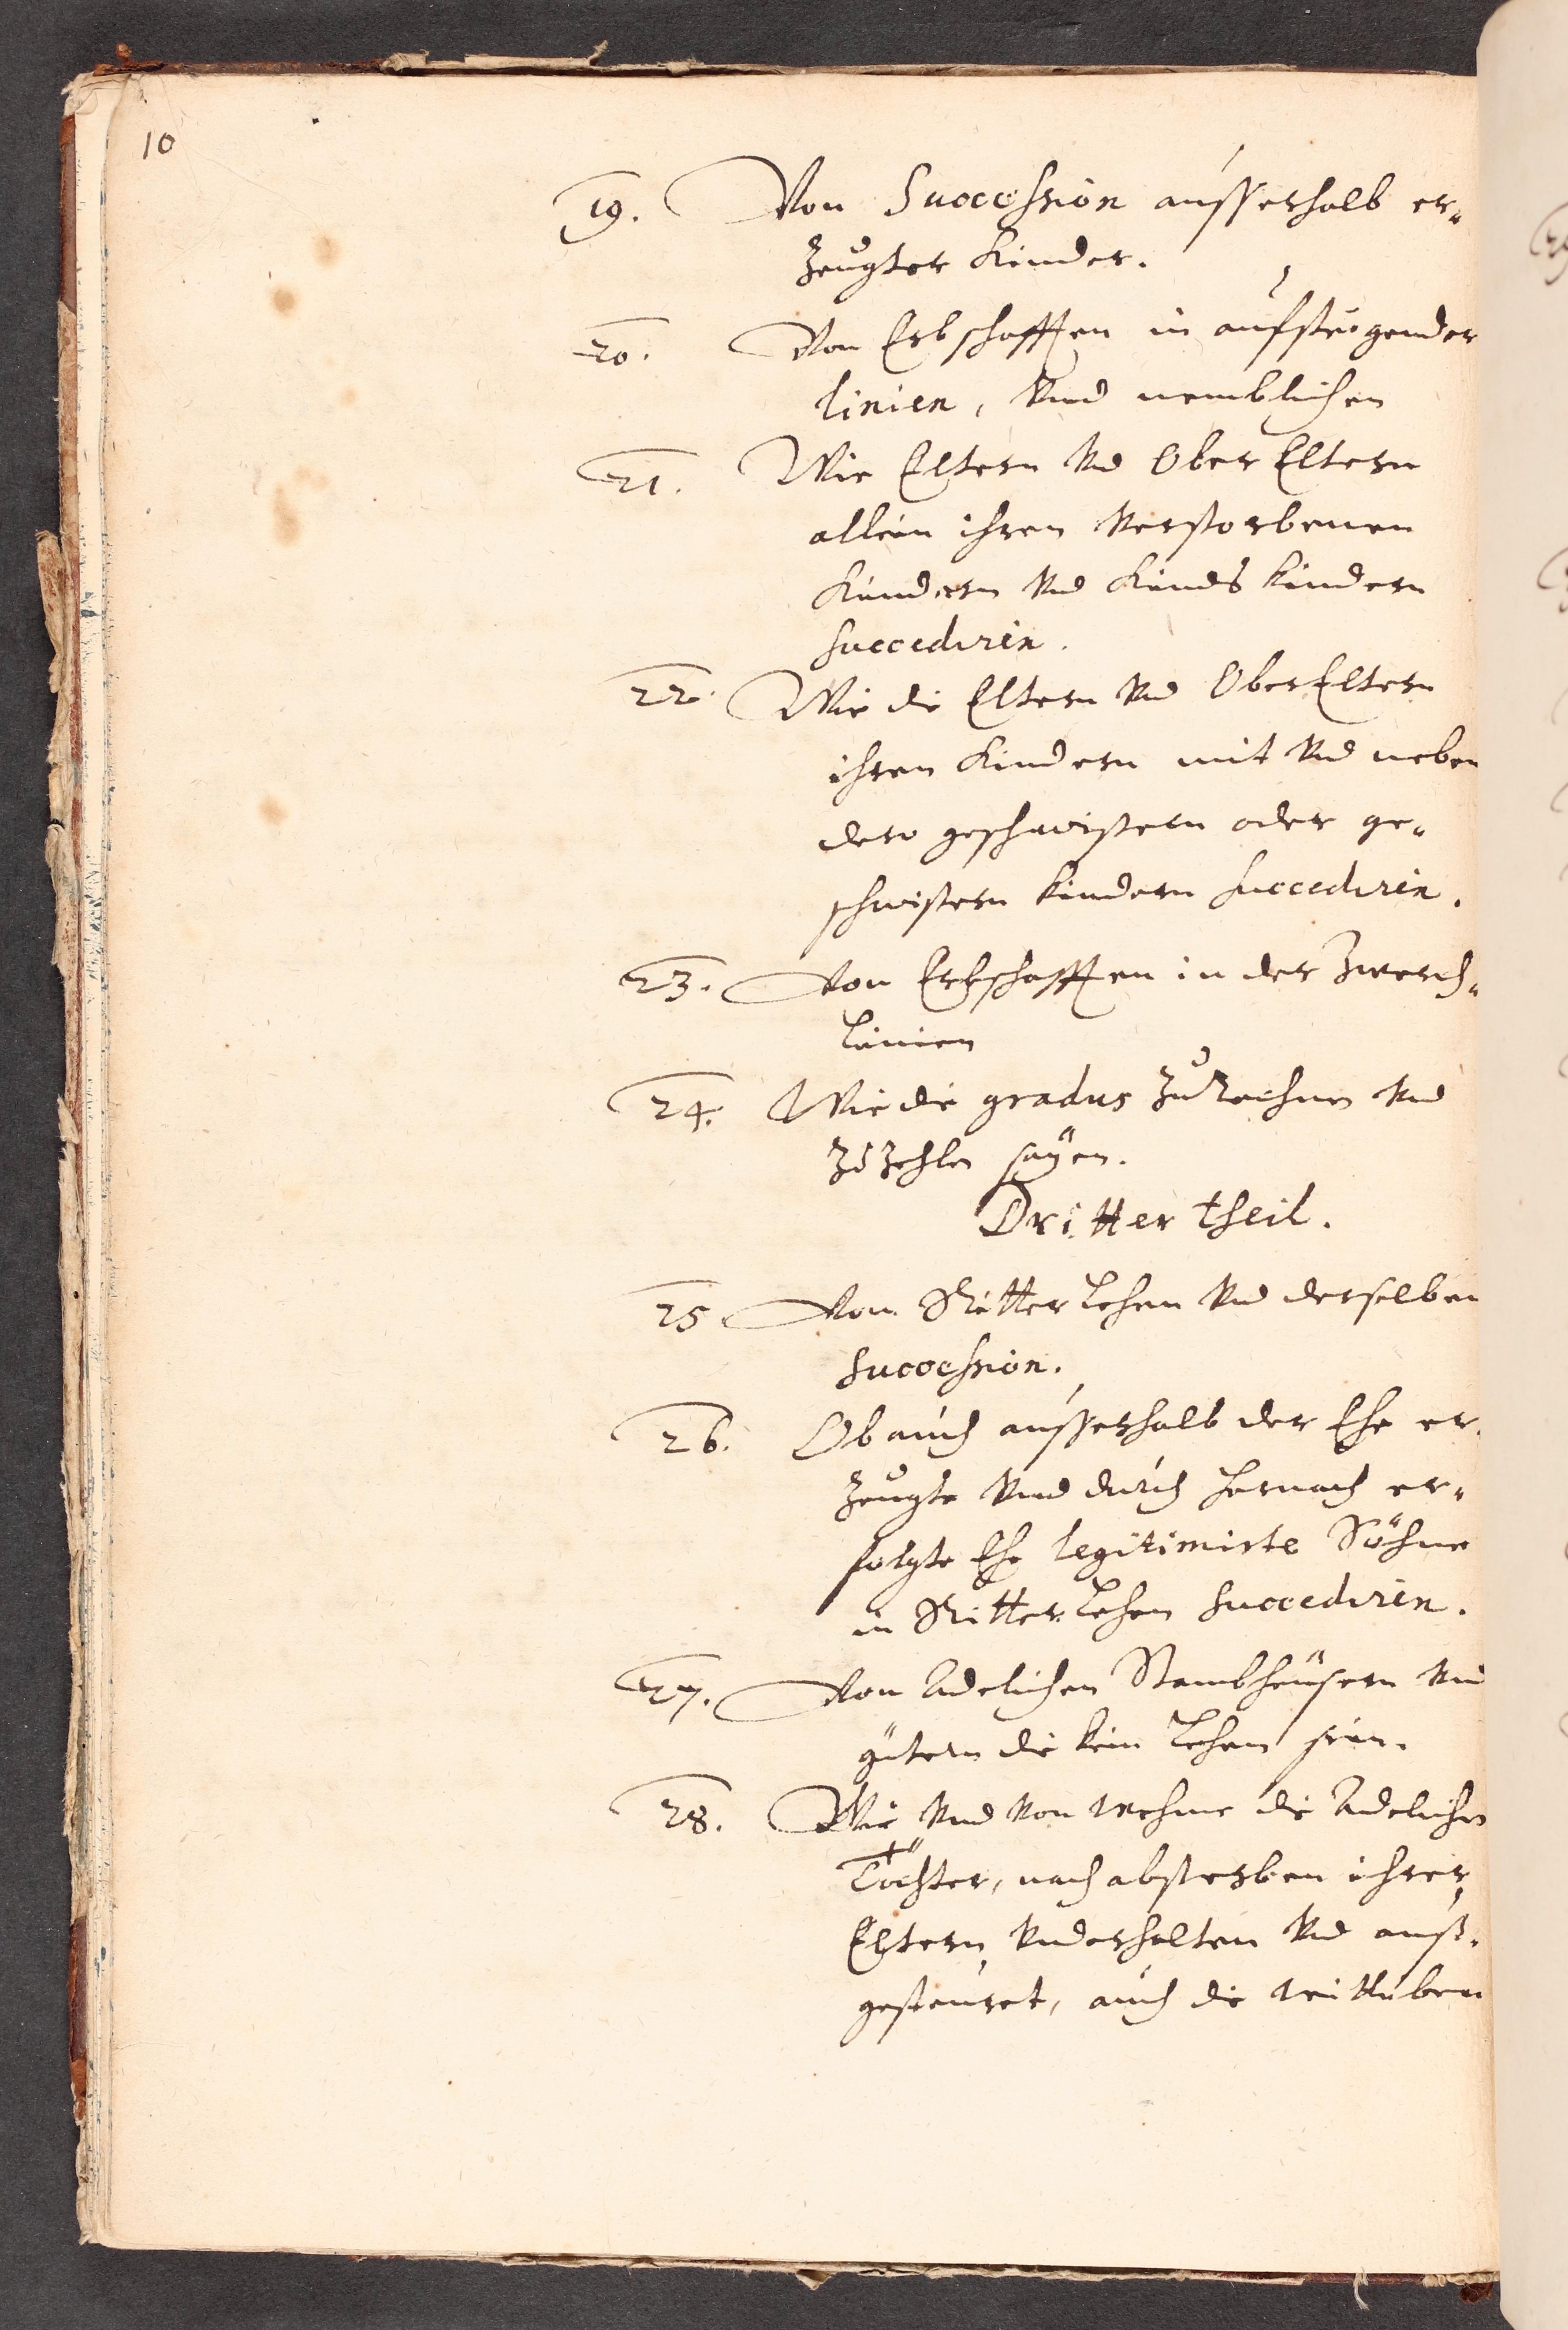 10
19. Von Succession ausserhalb er-
zeugter Kinder.
20. Von Erbschafften in aufsteigender
linien, Vnd nemblichen
21. Wie Eltern Vnd Ober Eltern
allein ihren Verstorbenen
Kindern Vnd Kinds kindern
succediren.
22. Wie die Eltern Vnd OberEltern
ihren Kindern mit Vnd neben
dero geschwistern oder ge-
schwistern kindern succediren.
23. Von Erbschafften in der Zwerch-
Linien
24. Wie die gradus zu rechnen Vnd
zu zehlen seÿen.
Dritter theil.
25 Von Ritter Lehen Vnd derselben
succession.
26. Ob auch ausserhalb der Ehe er-
zeugte Vnd durch hernach er-
folgte Ehe legitimirte Söhne
in Ritter Lehen succediren.
27. Von Adelichen Stambheüsern Vnd
gütern die kein Lehen sein.
28. Wie Vnd Von wehme die Adelichen
Töchter, nach absterben ihrer
Eltern, Vnderhalten Vnd auß-
gesteuret, auch die wittuben